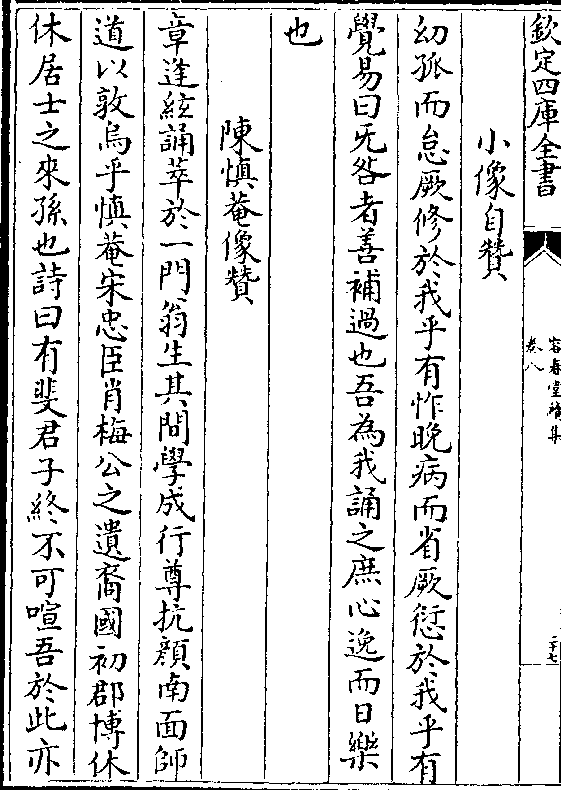 欽定四庫全書
容春堂續集
卷八
二十七
小像自贊
幼孤而怠厥修於我乎有怍晚病而省厥愆於我乎有
覺易曰旡咎者善補過也吾為我誦之庶心逸而日樂
也
陳慎菴像贊
章逢絃誦萃於一門翁生其間學成行尊抗顔南面師
道以敦烏乎慎菴宋忠臣肖梅公之遺裔國初郡博休
休居士之來孫也詩曰有斐君子終不可喧吾於此亦